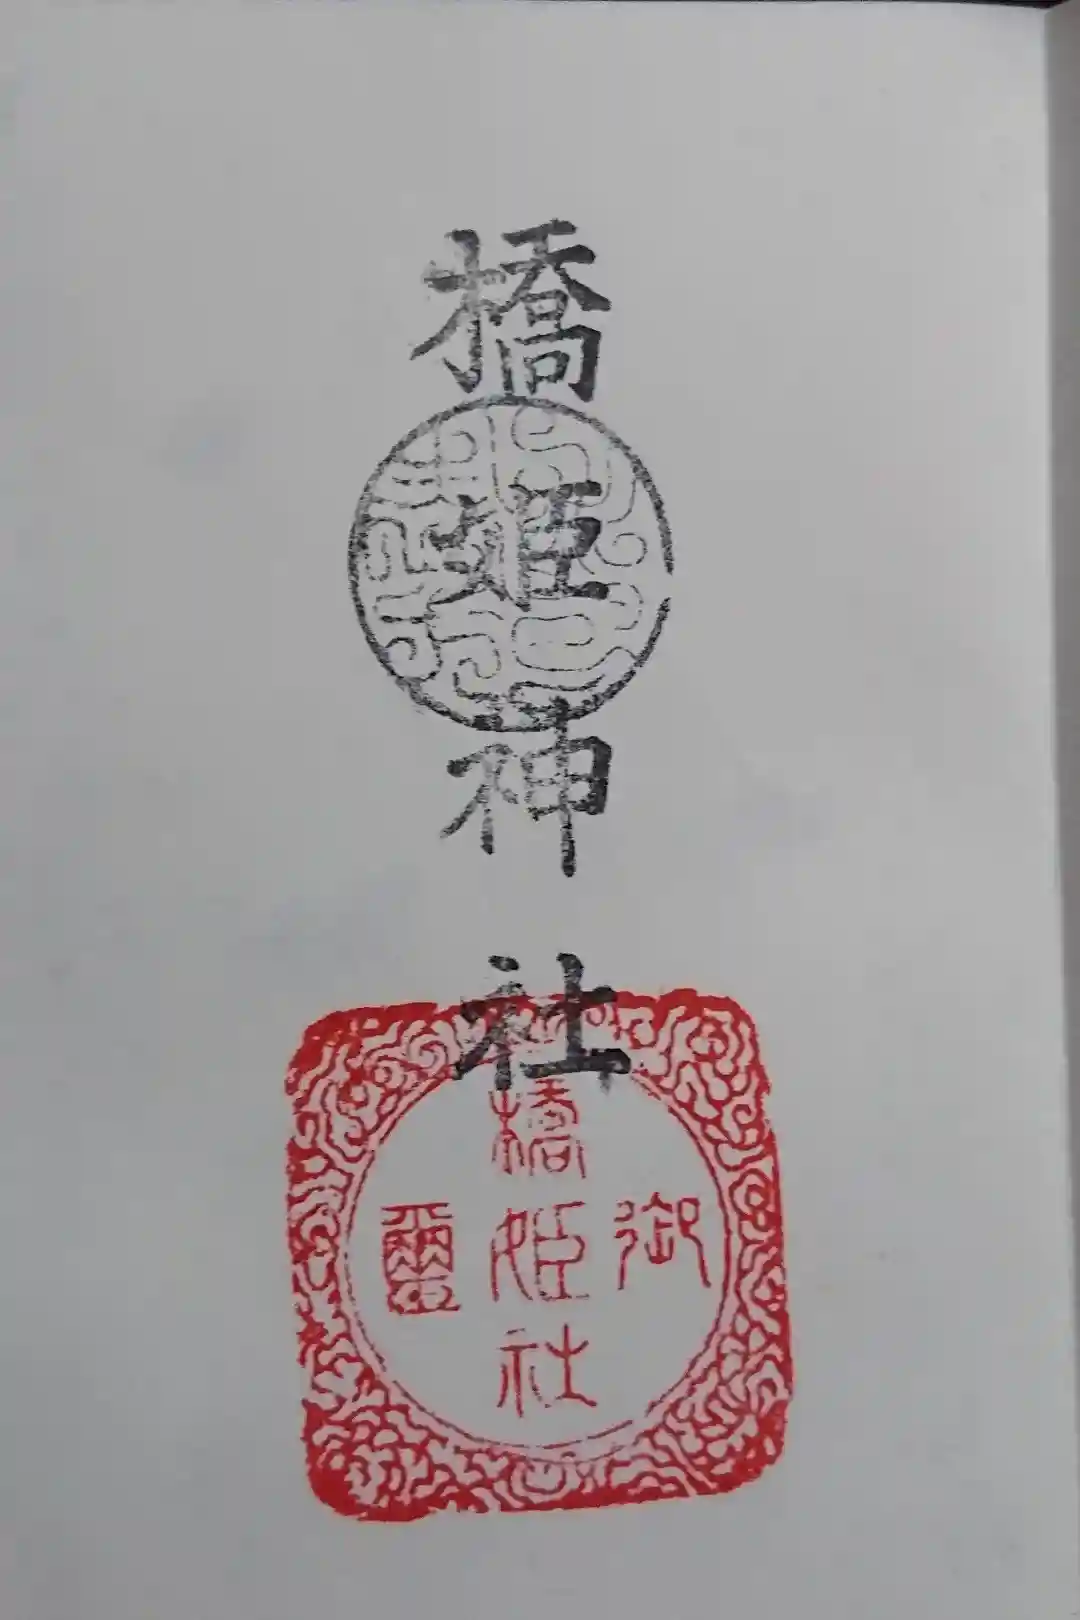 橋姫神社
御
橋姫社
璽